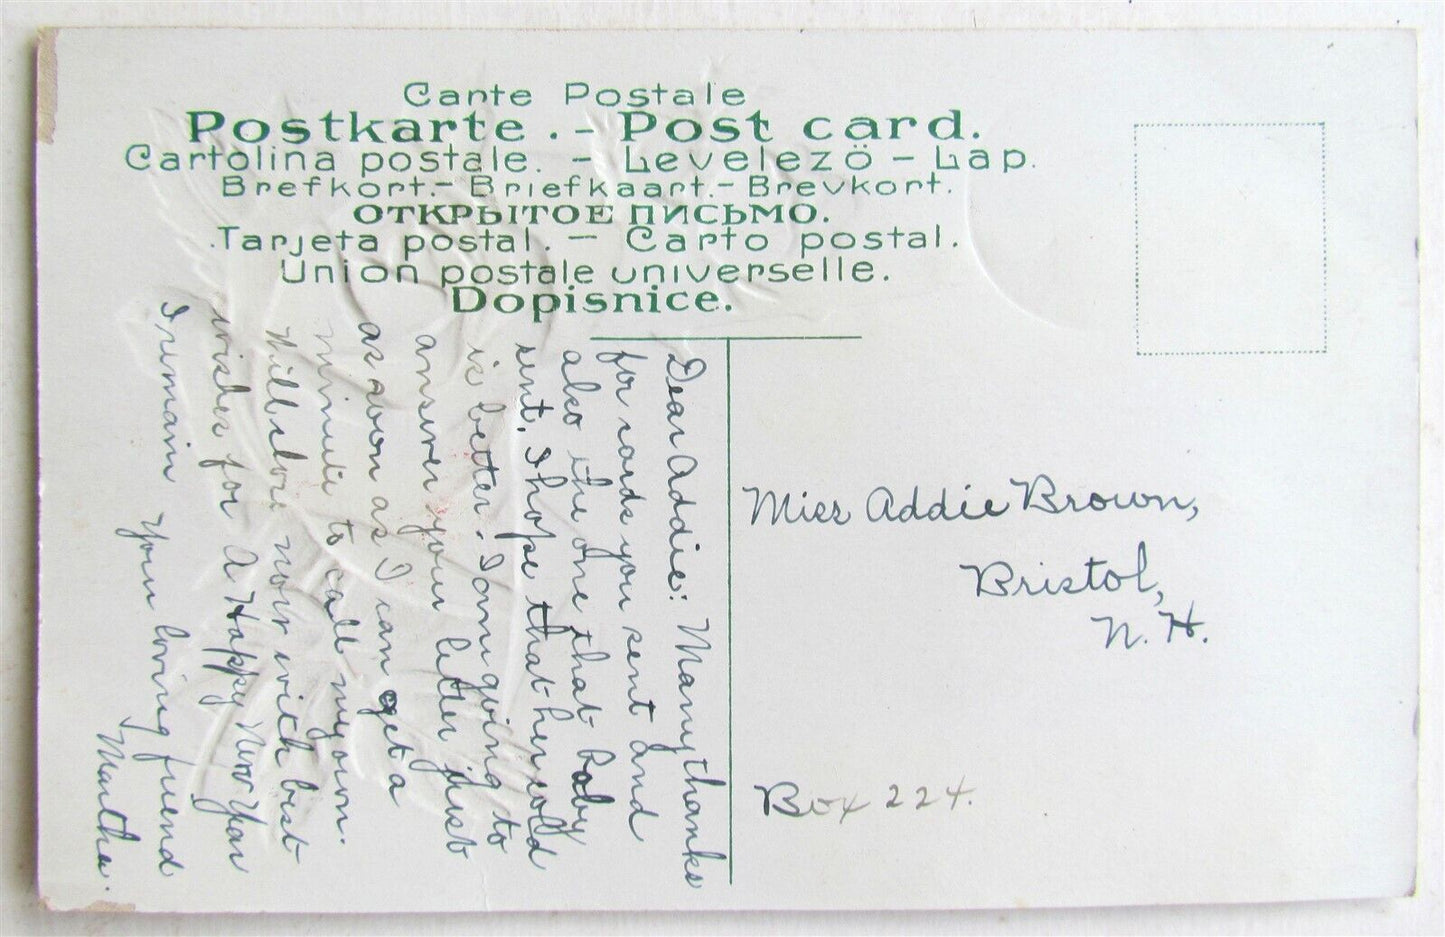 Carte Postale
Postkarte . - Post card.
Cartolina postale. - Levelező - Lap.
Brefkort.- Briefkaart.- Brevkort.
ОТКРЫТОЕ ПИСЬМО.
.Tarjeta postal. - Carto postal.
Union postale universelle.
Dopisnice.
Dear Addie: Many thanks
for cards you sent and
also the one that baby
sent. I hope that her cold
is better. I am going to
answer your letter just
as soon as I can get a
minute to call my own.
Will close now with best
wishes for A Happy New Year
I remain your loving friend
Martha.
Miss Addie Brown,
Bristol,
N. H.
Box 224.